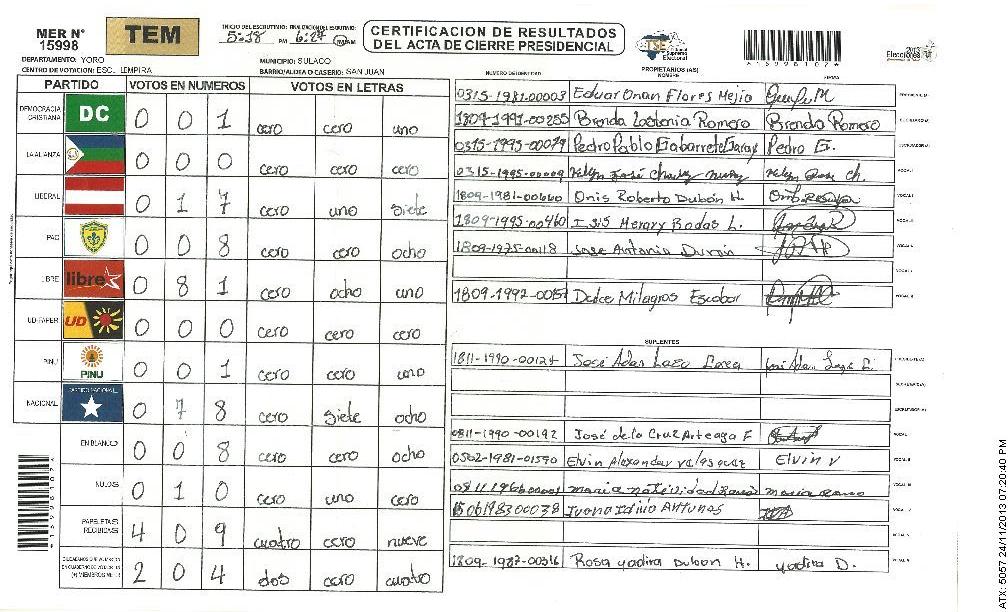 MER N° 15998
TEM
INICIO DEL ESCRUTINIO: 5:18 PM FINALIZACION DEL ESCRUTINIO: 6:27
CERTIFICACION DE RESULTADOS
DEL ACTA DE CIERRE PRESIDENCIAL
TSE Tribunal Supremo Electoral
Elecciones 2013
*1599810 2*
DEPARTAMENTO: YORO
MUNICIPIO: SULACO
CENTRO DE VOTACION: ESC. LEMPIRA
BARRIO/ALDEA O CASERIO: SAN JUAN
PARTIDO VOTOS EN NUMEROS VOTOS EN LETRAS
DEMOCRACIA CRISTIANA DC 0 0 1 cero cero uno
LA ALIANZA 0 0 0 cero cero cero
LIBERAL 0 1 7 cero uno siete
PAC 0 0 8 cero cero ocho
LIBRE libre 0 8 1 cero ocho uno
UD-FAPER UD 0 0 0 cero cero cero
PINU PINU 0 0 1 cero cero uno
NACIONAL PARTIDO NACIONAL 0 7 8 cero siete ocho
EN BLANCO 0 0 8 cero cero ocho
NULOS 0 1 0 cero uno cero
PAPELETAS RECIBIDAS 4 0 9 cuatro cero nueve
2 0 4 dos cero cuatro
NUMERO DE IDENTIDAD PROPIETARIOS (AS) NOMBRE FIRMA
0315-1981-00003 Eduar Onan Flores Mejia
1809-1991-00255 Brenda Lastenia Romero Brenda Romero
0315-1995-00079 Pedro Pablo Gabarrete Garay Pedro G.
0315-1995-00009 José
1809-1981-00660 Onis Roberto Dubón H.
1809-1995-00460 Isis Merary Rodas L.
1809-1975-00118 Jose Antonio Duran
1809-1992-00157 Dulce Milagros Escobar
SUPLENTES
1811-1990-00124 Jose Adan Lazo
0811-1990-00192 José de la Cruz Arteaga F
0502-1981-01590 Elvin Alexander Velasquez Elvin V
maria natividad
150619830003 8 Antunes
1809-1987-00316 Rosa Yadira Dubon H. Yadira D.
ATX: 5057 24/11/2013 07:20:40 PM